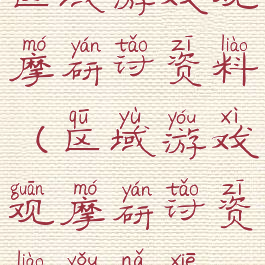 mó yán tǎo zī liào
摩研讨资料
qū yù yóu xì
（区域游戏
guān mó yán tǎo zī
观摩研讨资
liào yǒu nǎ xiē